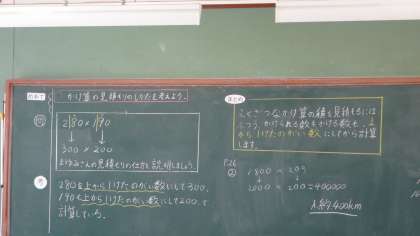 めあて
かけ算の見積もりのしかたを考えよう。
問
280×190
300×200
まゆみさんの見積もりの仕方を説明しましょう。
280を上から1けたのがい数にして300、
190も上から1けたのがい数にして200で
計算している。
まとめ
ふくざつなかけ算の積を見積もるには
ふつう かけられる数もかける数も、上
から1けたのがい数にしてから計算
します。
P.26
②
1800 × 209
2000 × 200=400000
A 約400km